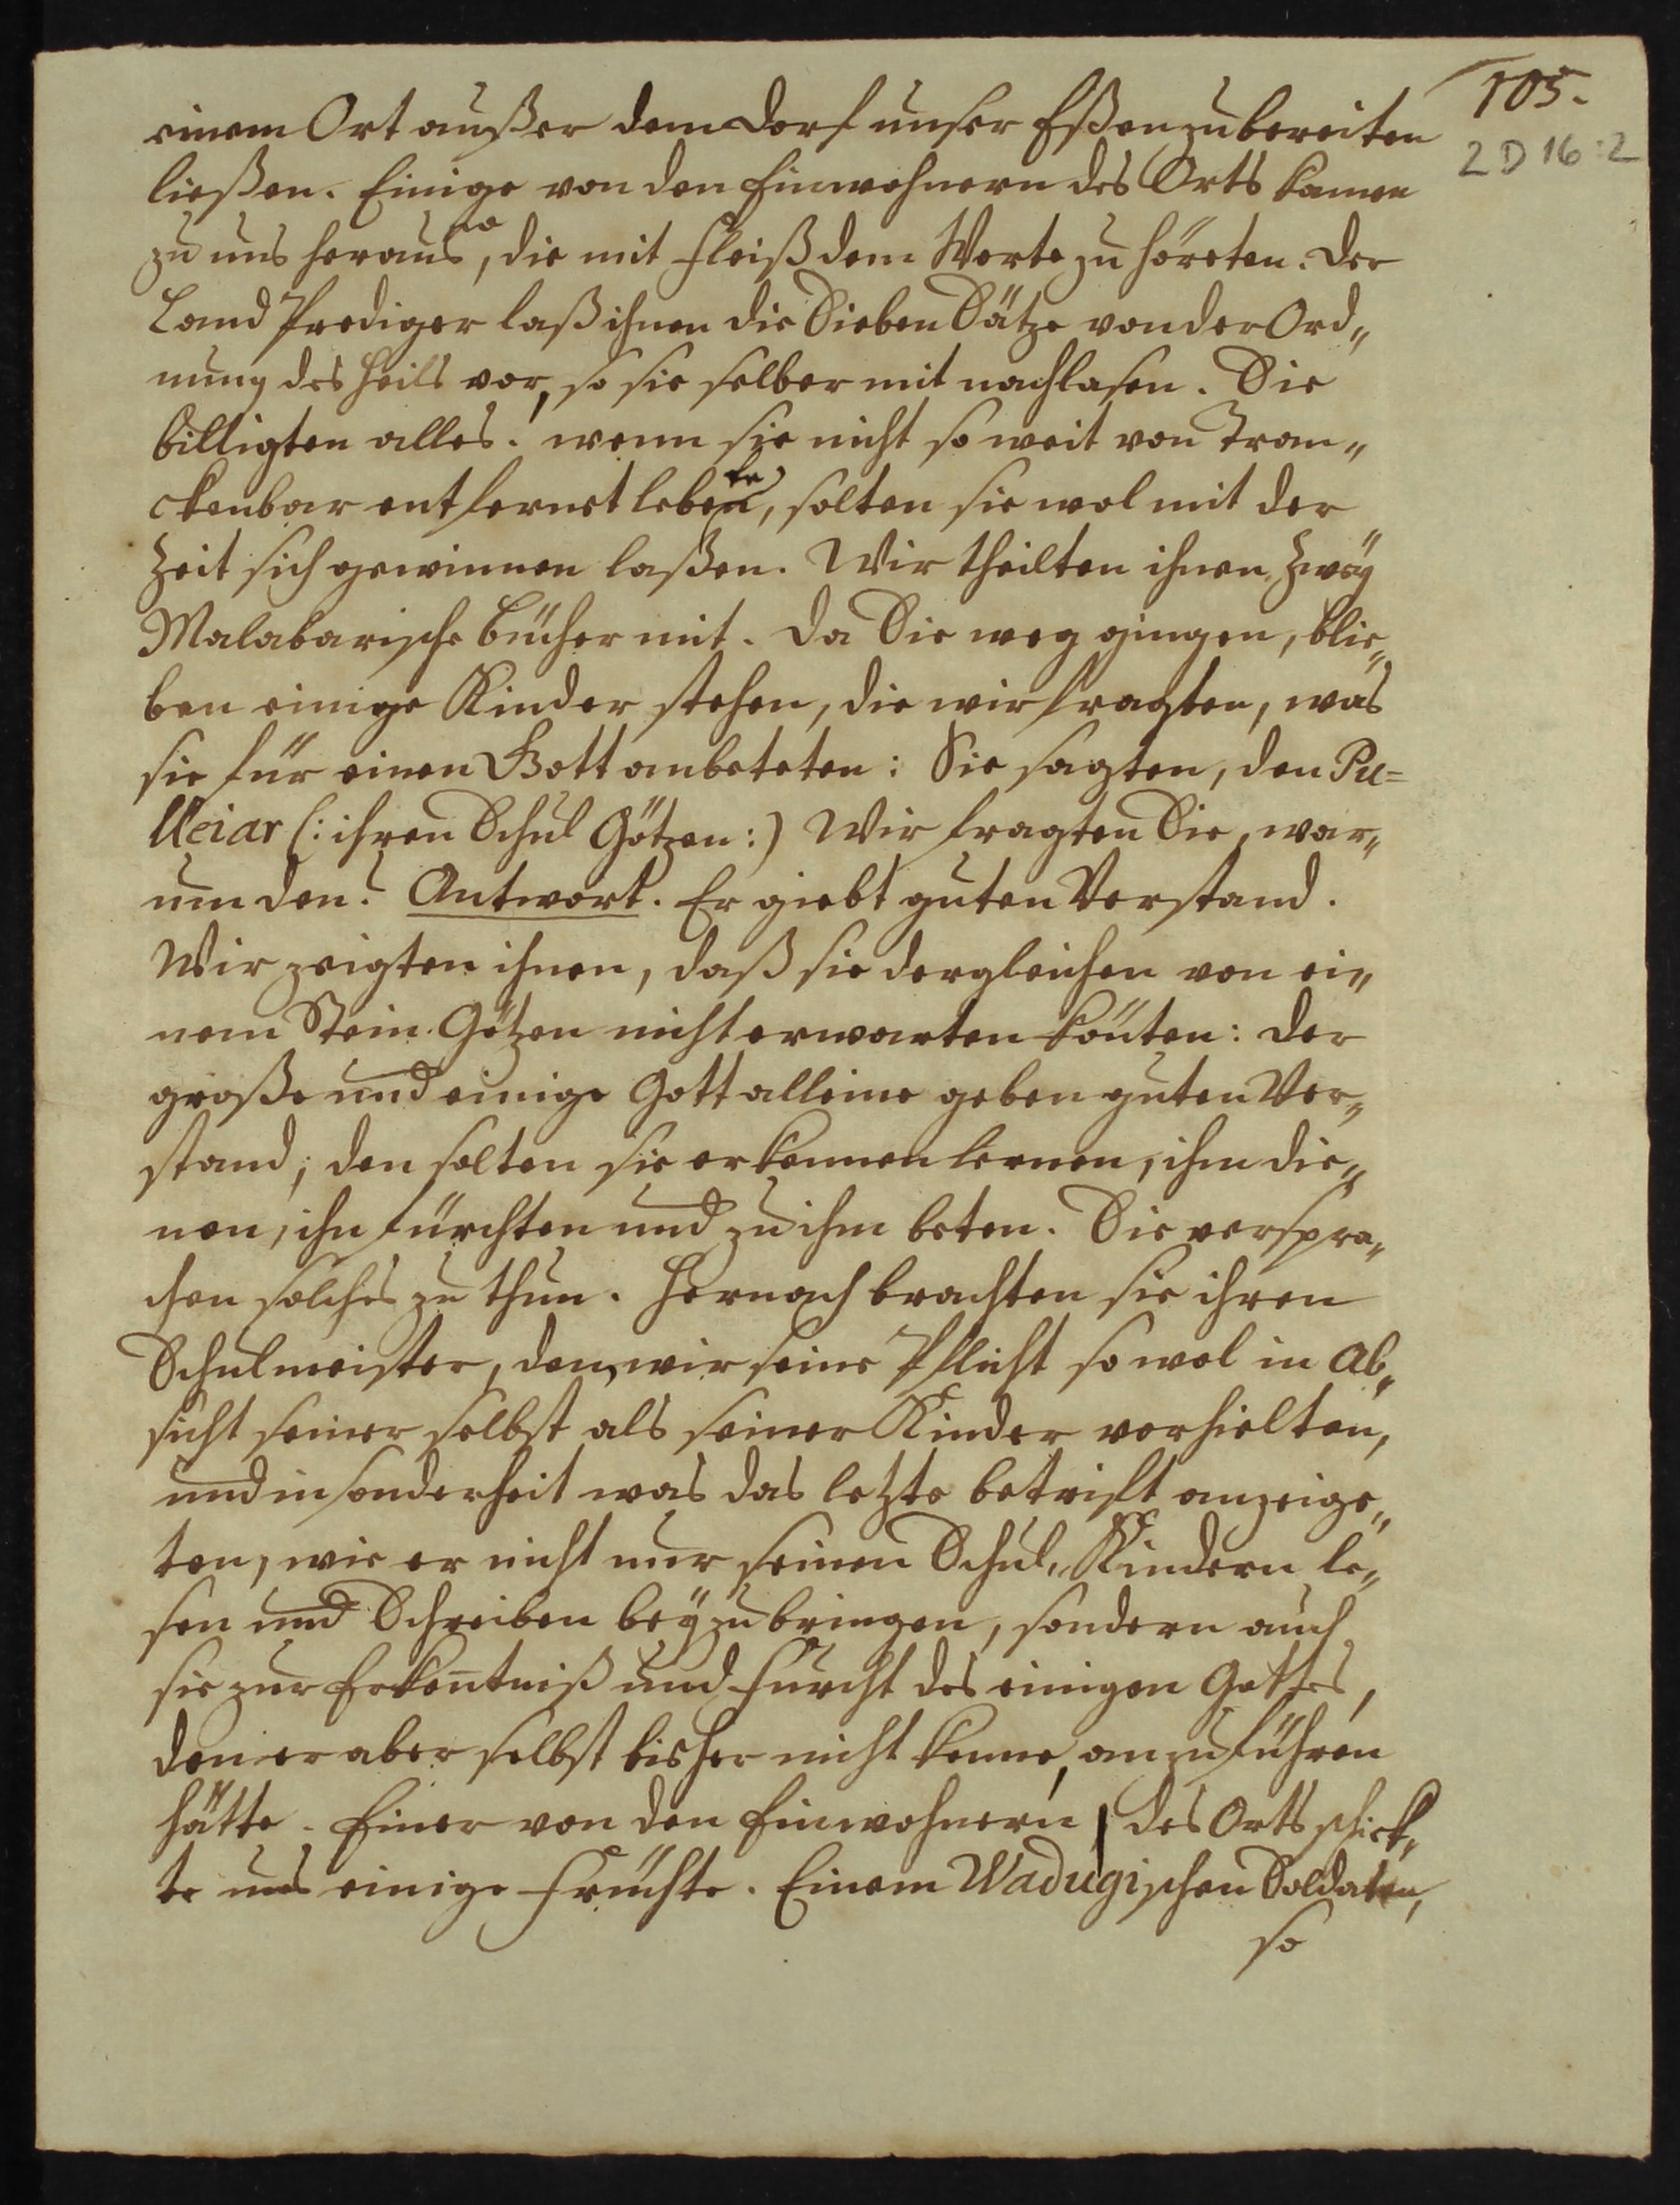 105.
2 D 16:2
einem Ort außer dem Dorf unser Eßen zubereiten
ließen. Einige von den Einwohnern des Orts kamen
zu uns heraus, die mit Fleiß dem Worte zu höreten. Der
Land Prediger laß ihnen die Sieben Sätze von der Ord„
nung des Heils vor, so sie selber mit nachlasen. Sie
billigten alles. wenn sie nicht so weit von Tran„
ckenbar entfernet leben, solten sie wol mit der
Zeit sich gewinnen laßen. Wir theilten ihnen zwey
Malabarische Bücher mit. Da Sie weg gingen, blie„
ben einige Kinder stehen, die wir fragten, was
sie für einen Gott anbeteten: Sie sagten, den Pu=
lleiar (: ihren Schul Götzen :) Wir fragten Sie, war„
um den? Antwort. Er giebt guten Verstand.
Wir zeigten ihnen, daß sie dergleichen von ei„
nem Stein-Götzen nicht erwarten könten: der
große und einige Gott alleine geben guten Ver„
stand; den solten sie erkennen lernen, ihm die„
nen, ihn fürchten und zu ihm beten. Sie verspra„
chen solches zu thun. Hernach brachten sie ihren
Schulmeister, dem wir seine Pflicht so wol in Ab„
sicht seiner selbst als seiner Kinder vorhielten,
und insonderheit was das letzte betrift anzeige„
ten, wie er nicht nur seinen Schul„Kindern le„
sen und Schreiben beyzubringen, sondern auch
sie zur Erkentniß und Furcht des einigen Gottes,
den er aber selbst bisher nicht kenne, anzuführen
hätte. Einer von den Einwohnern des Orts schick„
te uns einige Früchte. Einem Wadugischen Soldaten,
so